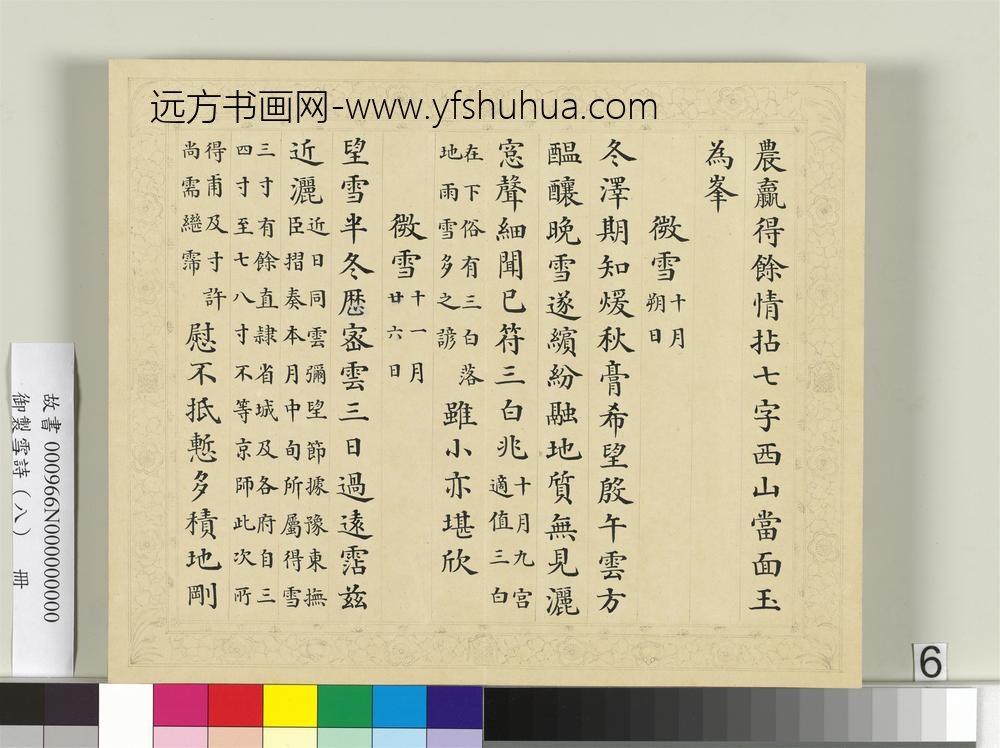 远方书画网-www.yfshuhua.com
農贏得餘情拈七字西山當面玉
為峯
微雪十月朔日
冬澤期知煖秋膏希望殷午雲方
醖釀晚雪遂繽紛融地質無見灑
窓聲細聞已符三白兆十月九宮適值三白
在下俗有三白落地雨雪多之諺雖小亦堪欣
微雪十一月廿六日
望雪半冬歴密雲三日過遠霑茲
近灑近日同雲彌望節據豫東撫臣摺奏本月中旬所屬得雪
三寸有餘直隷省城及各府自三四寸至七八寸不等京師此次所
得甫及寸許尚需繼霈慰不抵慙多積地剛
故書 000966N000000000
御製雪詩（八） 冊
6